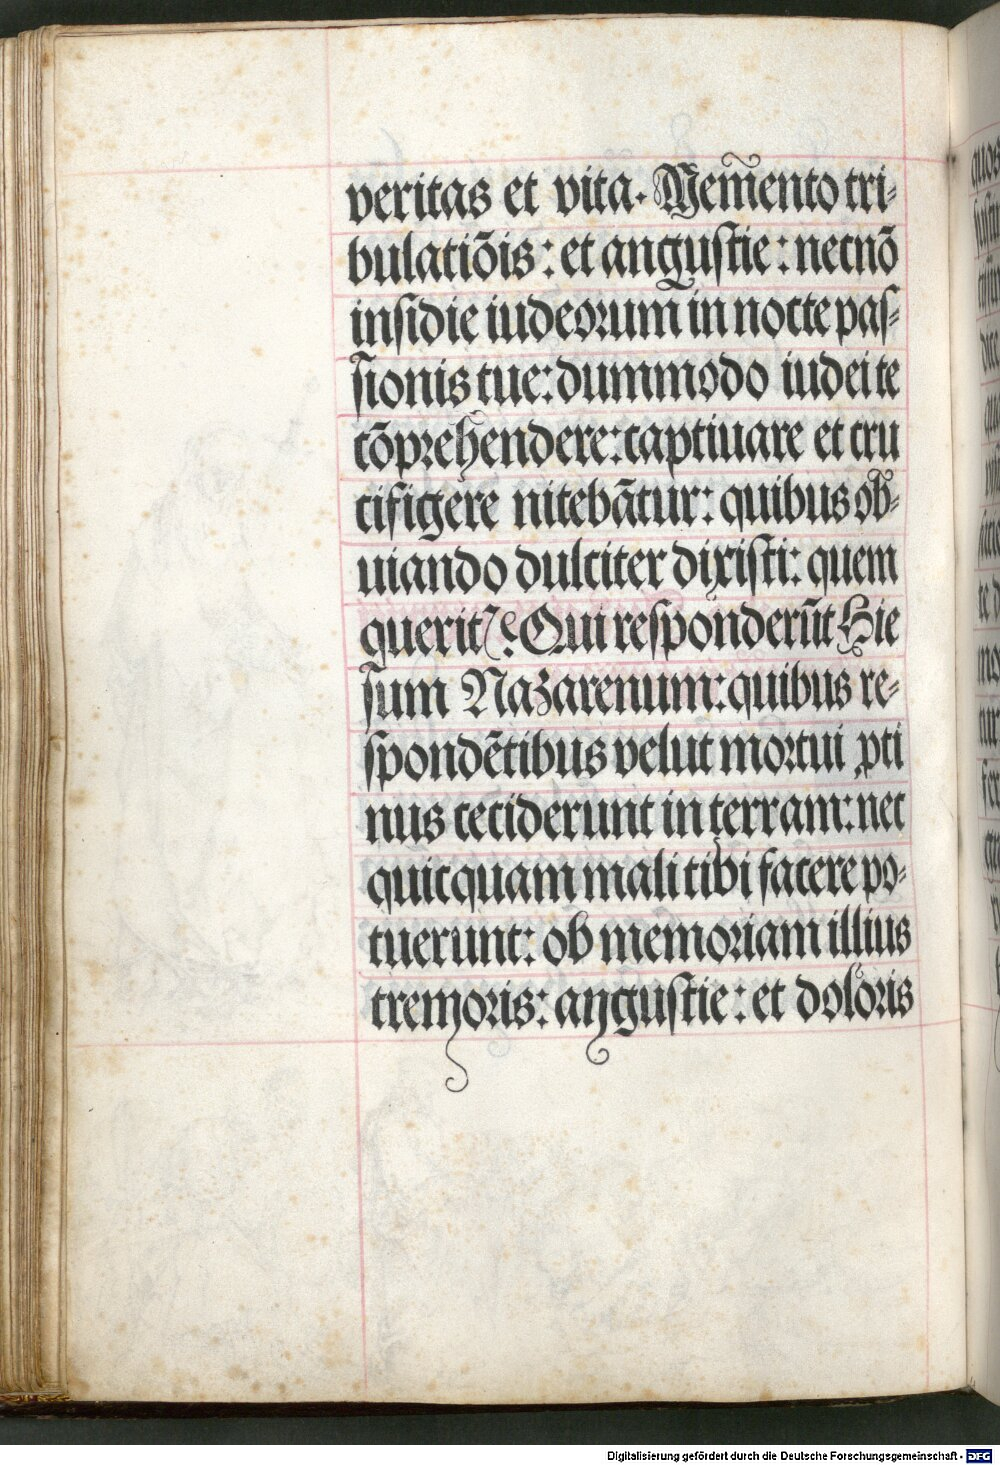 veritas et vita. Memento tri-
bulatiõis: et angustie: necnõ
insidie iudeorum in nocte pas-
sionis tue: dummodo iudei te
cõprehendere: captiuare et cru
cifigere nitebãtur: quibus ob-
uiando dulciter dixisti: quem
querit Qui responderūt Hie
sum Nazarenum: quibus re-
spondētibus velut mortui ꝓti
nus ceciderunt in terram: nec
quicquam mali tibi facere po-
tuerunt: ob memoriam illius
tremoris: angustie: et doloris
Digitalisierung gefördert durch die Deutsche Forschungsgemeinschaft - DFG